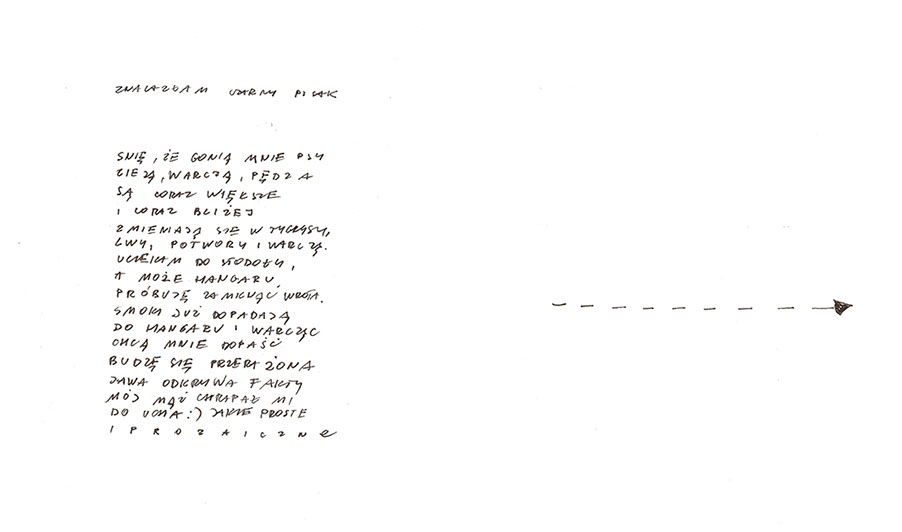 ZNALAZŁAM CZARNY PISAK
SNIĘ, ŻE GONIĄ MNIE PSY
BIEŻĄ, WARCZĄ, PĘDZĄ
SĄ CORAZ WIĘKSZE
I CORAZ BLIŻEJ
ZMIENIAJĄ SIĘ W TYGRYSY,
LWY, POTWORY I WARCZĄ.
UCIEKAM DO STODOŁY,
A MOŻE HANGARU,
PRÓBUJĘ ZAMKNĄĆ WROTA.
SMOKI JUŻ DOPADAJĄ
DO HANGARU I WARCZĄC
CHCĄ MNIE DOPAŚĆ
BUDZĘ SIĘ PRZERAŻONA
JAWA ODKRYWA FAKTY
MÓJ MĄŻ CHRAPAŁ MI
DO UCHA :) JAKIE PROSTE
I PROZAICZNE